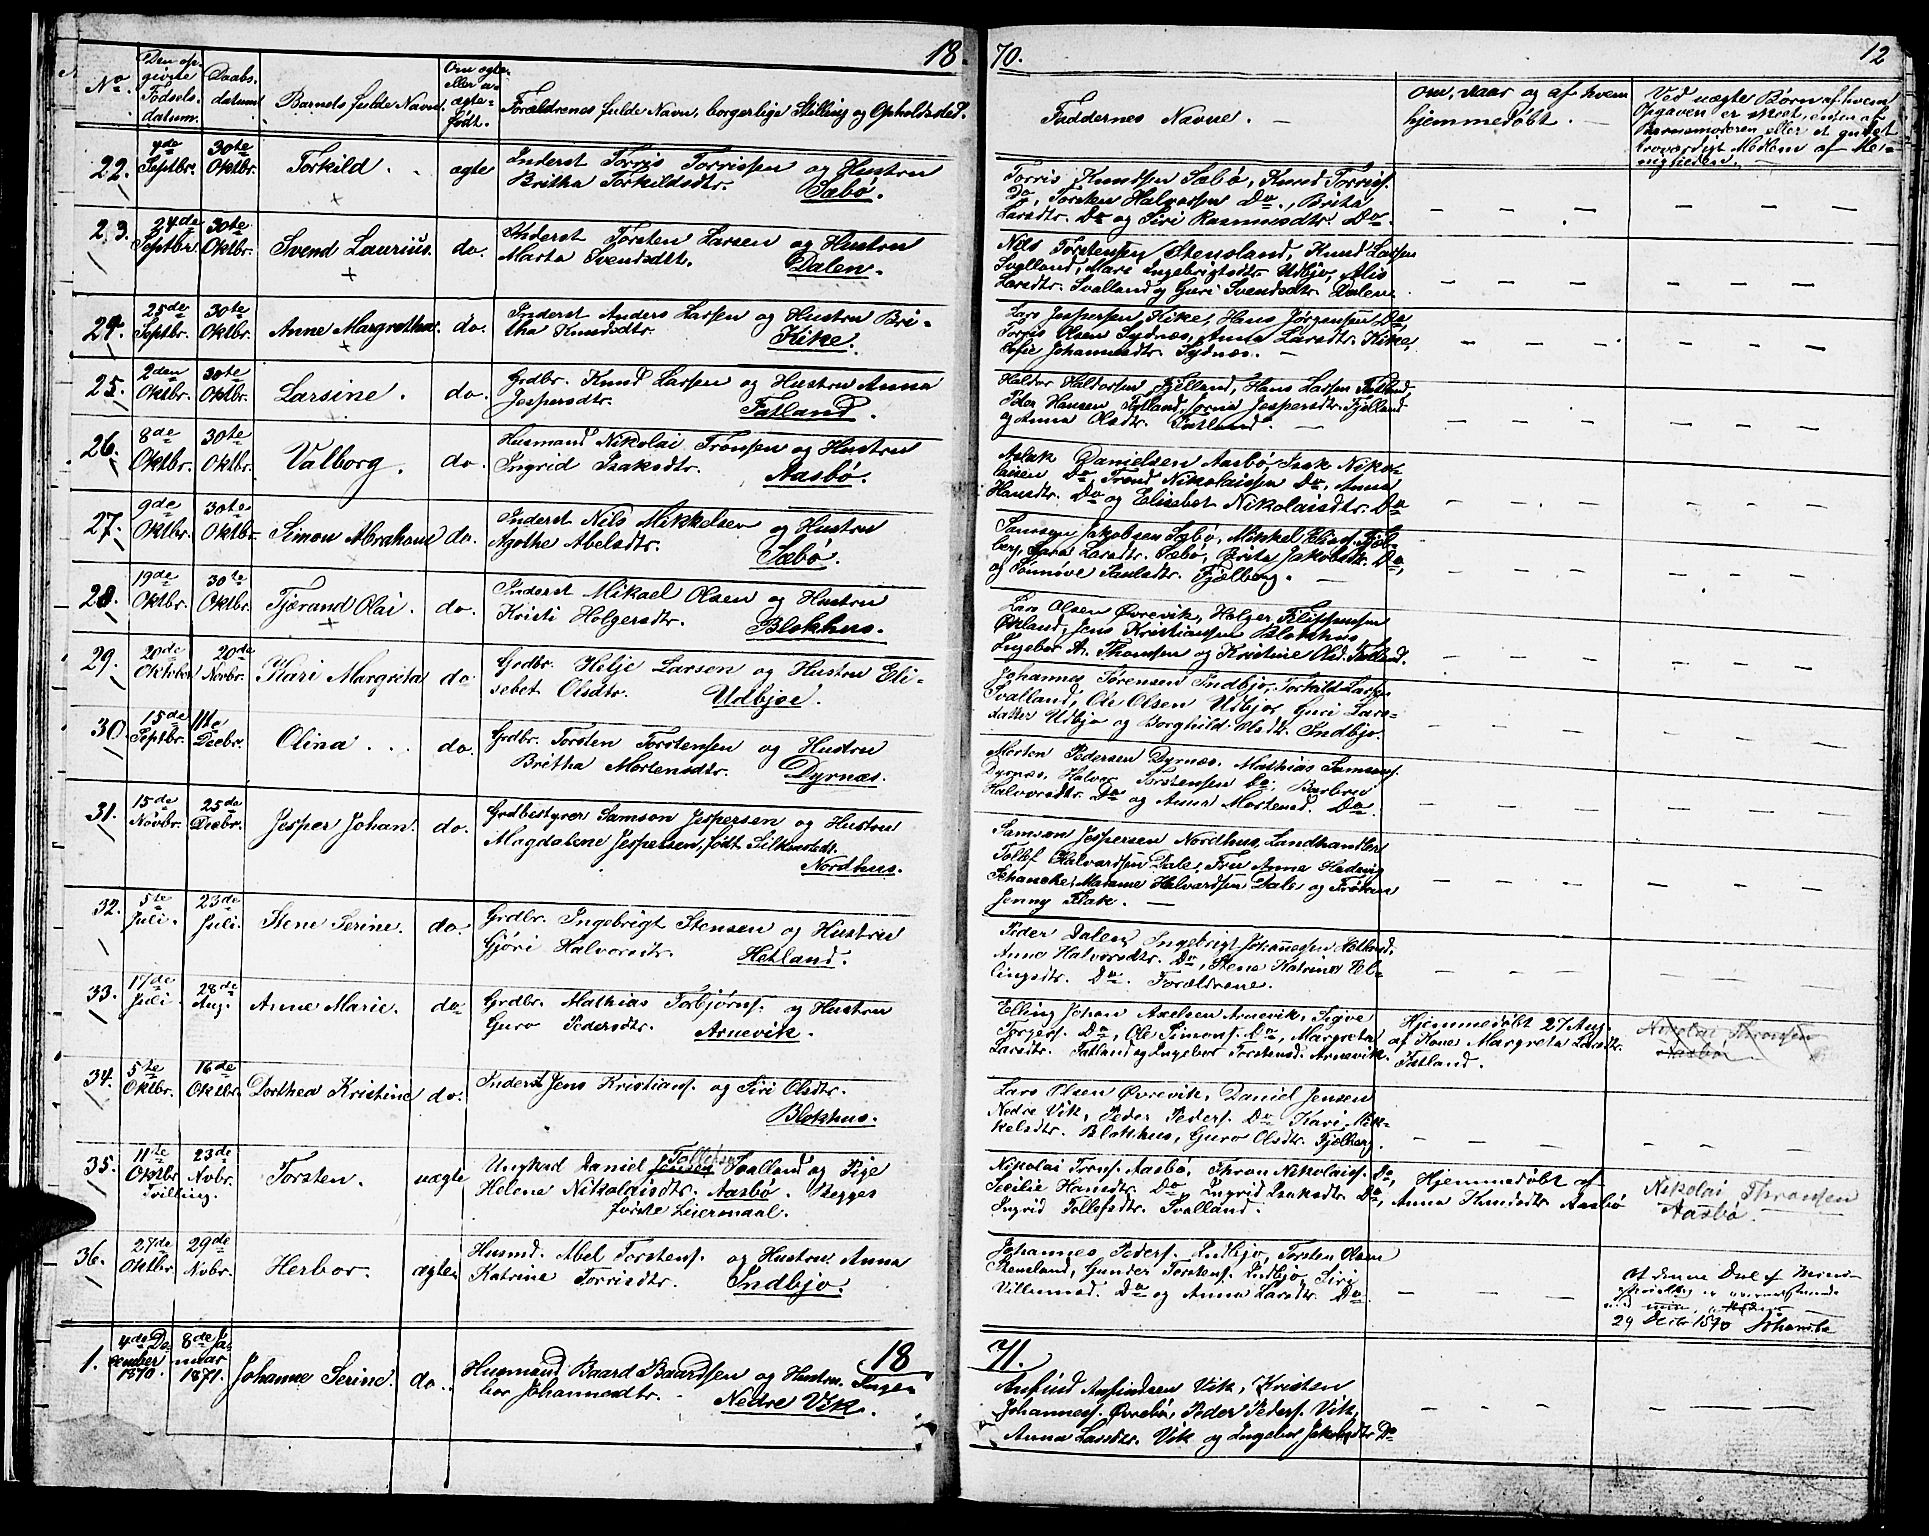 18
70.
12
No.
Den op-
givne
Fødsels-
datum.
Daabs-
datum
Barnets fulde Navn.
Om ægte-
eller u-
ægte-
født.
Forældrenes fulde Navn, borgerlige Stilling og Opholdssted.
Faddernes Navne. —
om, naar og af hvem
hjemmedøbt. —
Ved uægte Børn af hvem
Opgaven er skeet, enten af
Barnemoderen eller et andet
troværdigt Medlem af Me-
nigheden. —
22. 4de Septbr. 30te Oktbr. Torkild. ægte
Inderst Torris Torrissen og Hustru
Britha Torkildsdtr. Sæbø.
Torris Knudsen Sæbø, Knud Torriss.
Do, Torsten Halvorsen Do, Brita
Larsdtr. Do og Siri Rasmusdtr. Do.
23. 24de Septbr. 30te Oktbr. Svend Laurius. do.
Inderst Torsten Larsen og Hustru
Marta Svendsdt. Dalen.
Nils Torstensen Stensland, Knud Larsen
Svalland, Mari Ingebrigtsdtr. Udbjo, Alis
Larsdtr. Svalland og Guri Svendsdtr. Dalene.
24. 25de Septbr. 30te Oktbr. Anne Margretha. do.
Inderst Anders Larsen og Hustru Bri-
tha Knudsdtr. Kike.
Lars Jespersen Kike, Hans Jørgensen Do,
Torris Olsen Sydnæs, Anna Larsdtr. Kike,
Sofie Johannesdtr. Sydnæs. —
25. 2den Oktbr. 30te Oktbr. Larsine. do.
Grdbr. Knud Larsen og Hustru Anna
Jespersdtr. Fatland.
Haldor Haldorsen Fjelland, Hans Larsen Fatland,
Peder Hansen Fatland, Jorna Jespersdtr. Fjelland
og Anna Olsdtr. Fatland. —
26. 8de Oktbr. 30te Oktbr. Valborg. do.
Husmand Nikolai Trønsen og Hustru
Ingrid Isaksdtr. Aasbø.
Aslak Danielsen Aasbø, Isak Niko-
laisen Do, Trond Nikolaissen Do, Anna
Hansdtr. Do og Elisabet Nikolaisdtr. Do
27. 9de Oktbr. 30te Oktbr. Simon Abraham do.
Inderst Nils Mikkelsen og Hustru
Agothe Abelsdtr. Sæbø.
Samson Jakobsen Sæbø, Mikkel Eliass. Fjæl-
berg, Sara Larsdtr. Sæbø, Brita Jakobsdtr. Do,
og Sønnive Paulsdtr. Fjælberg. —
28. 19de Oktbr. 30te Oktbr. Tjærand Olai. do.
Inderst Mikael Olsen og Hustru
Kristi Holgersdtr. Blokhus.
Lars Olsen Øvrevik, Holger Filippussen
Økland, Jens Kristiansen Blokhus
Ingebor A. Thomsen og Kristine Olsd. Fatland.
29. 20de Oktober 20de Novbr. Kari Margreta do.
Grdbr. Helje Larsen og Hustru Eli-
sebet Olsdtr. Udbjoe.
Johannes Sørensen Indbjo, Torkild Larsen
Svalland, Ole Olsen Udbjo, Guri Lars-
datter Udbjo og Borghild Olsdtr. Indbjo.
30. 15de Septbr. 11te Decbr. Olina. do.
Grdbr. Torsten Torstensen og Hustru
Britha Mortensdtr. Dyrnæs.
Morten Pedersen Dyrnæs, Mathias Samsons.
Dyrnæs, Halvor Torstensen Do, Barbru
Halvorsdtr. Do og Anna Mortensd. Do.
31. 15de Novbr. 25de Decbr. Jesper Johan. do.
Grdbestyrer Samson Jespersen og Hustru
Magdalene Jespersen, født Silkenstedt.
Nordhus.
Samson Jespersen Nordhus, Landhandler
Tollef Halvardsen Dale, Fru Anna Hedevig
Schancke, Madame Halvardsen Dale og Frøken
Jenny Flak. —
32. 5te Juli. 23de Juli. Stene Serine. do.
Grdbr. Ingebrigt Stensen og Hustru
Gjøri Halvorsdtr. Hetland.
Peder Dalen, Ingebrigt Johannessen Hetland,
Anna Halvorsdtr. Do, Stena Katrina El-
lingsdtr. Do. Forældrene.
33. 17de Juli 28de Aug. Anne Marie. do.
Grdbr. Mathias Torbjørns. og Hustru
Guro Pedersdtr. Arnevik.
Elling Johan Axelsen Arnevik, Sigve
Torgers. Do, Ole Simons. Do, Margreta
Larsdtr. Fatland og Ingebor Torstensd. Arnevik.
Hjemmedøbt 27 Aug.
af Kone Margreta Larsdtr.
Fatland.
Nikolai Thronsen
Aasbø.
34. 5te Oktbr. 16de Oktbr. Dorthea Kristine do.
Inderst Jens Kristians. og Siri Olsdtr.
Blokhus.
Lars Olsen Øvrevik, Daniel Jensen
Nedre Vik, Peder Peders. Do, Kari Mik-
kelsdtr. Blokhus, Guro Olsdtr. Fjelberg.
35. 11te Oktbr. Tvilling. 23de Novbr. Torsten. uægte
Ungkarl Daniel Jensen Tollefsen Svalland og Pige
Helene Nikolaisdtr. Aasbø. Begges
første Leiermaal.
Nikolai Trons. Aasbø, Thron Nikolaiss. Do,
Sesilie Hansdtr. Do, Ingrid Isaksdtr. Do,
Ingrid Tollefsdtr. Svalland.
Hjemmedøbt af
Anna Knudsdtr Aasbø
Nikolai Thronsen
Aasbø.
36. 27de Oktbr. 29de Novbr. Herbor. ægte
Husmd. Abel Torstens. og Hustru Anna
Katrine Torrisdtr. Indbjo.
Johannes Peders. Indbjo, Torsten Olsen
Stensland, Gunder Torstens. Indbjo, Siri
Villumsd. Do og Anna Larsdtr. Do.
29 Decbr 1870
18
71.
1. 4de De-
cember
1870. 8de Ja-
nuar
1871. Johanne Serine. do.
Husmand Baard Baardsen og Hustru Inge-
bor Johannesdtr. Nedre Vik.
Anfind Anfindsen Vik, Kristen
Johanness. Øvrebø, Peder Peders. Vik,
Anna Larsdtr. Vik og Ingebor Jakobsdtr Do